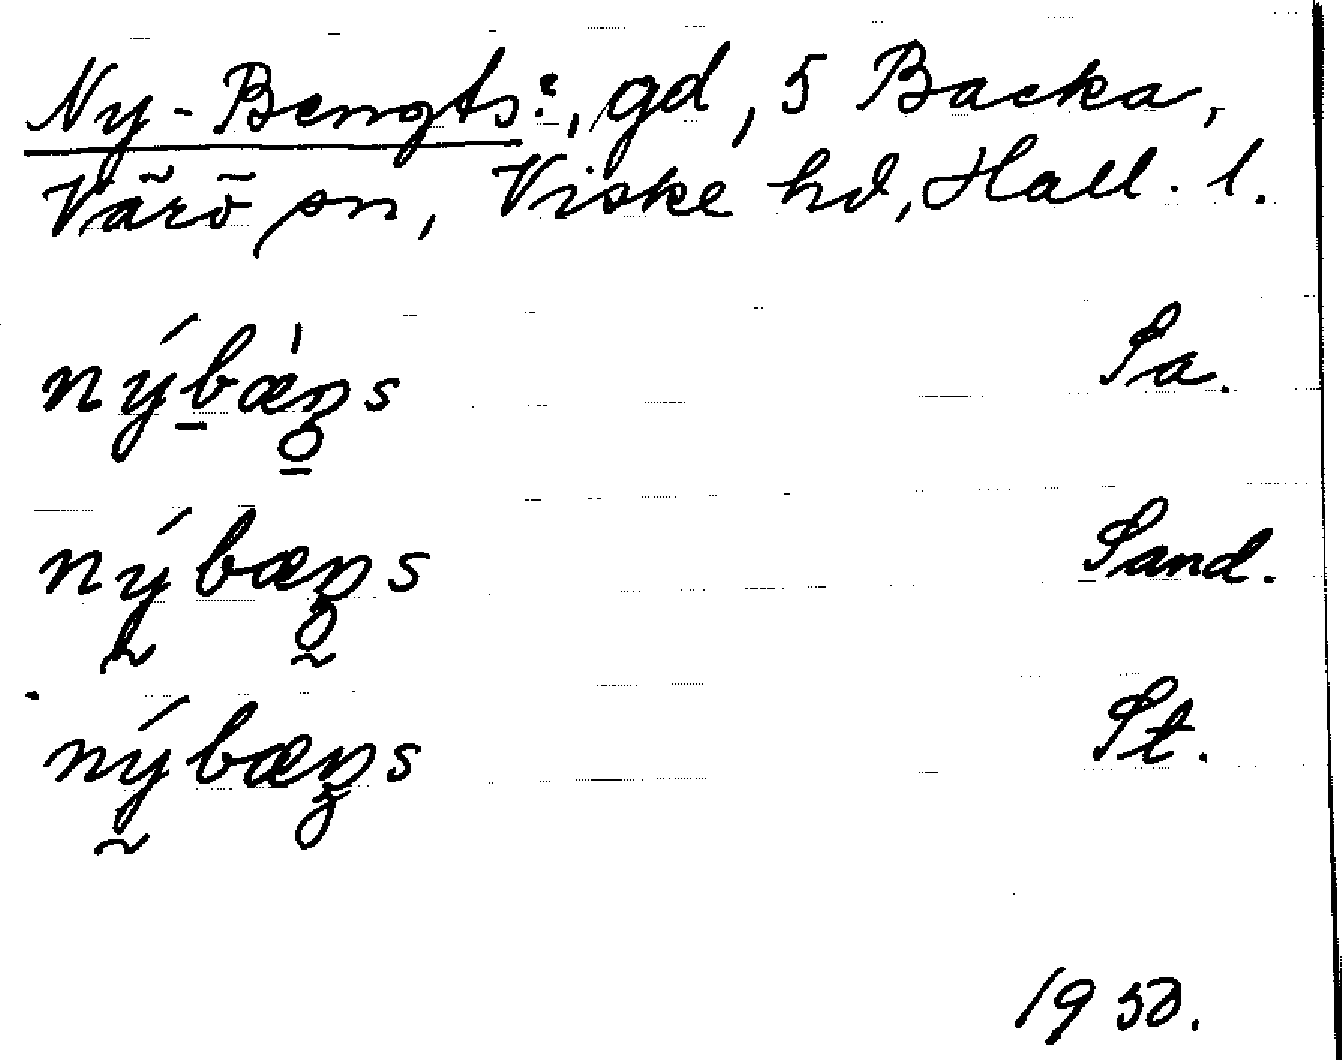 Ny-Bengts:, gd, 5 Backa,
Värö sn, Viske hd, Hall. l.
nýbæŋs Sa.
nýbæŋs Sand.
nýbæŋs St.
1950.